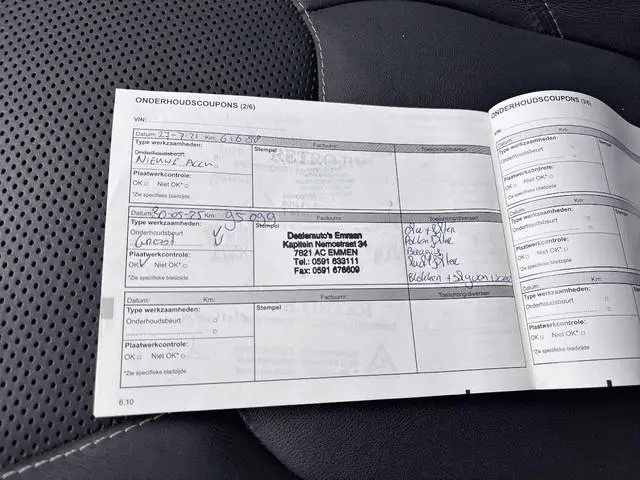 ONDERHOUDSCOUPONS (2/6)
VIN:
Datum: 27-7-21 Km:
Factuur:
Toelichting/diversen
Type werkzaamheden:
Stempel
Onderhoudsbeurt
NIEUWE ACCU
Plaatwerkcontrole:
OK Niet OK*
*Zie specifieke bladzijde
Datum: 30-05-25 Km: 95099
Factuur:
Toelichting/diversen
Type werkzaamheden:
Stempel
Onderhoudsbeurt
Groot
Plaatwerkcontrole:
OK Niet OK*
*Zie specifieke bladzijde
Dealerauto's Emraan
Kapitein Nemostraat 34
7821 AC EMMEN
Tel.: 0591 633111
Fax: 0591 678609
Olie + filter
Pollen filter
Lucht filter
Datum: Km:
Factuur:
Toelichting/diversen
Type werkzaamheden:
Stempel
Onderhoudsbeurt
Plaatwerkcontrole:
OK Niet OK*
*Zie specifieke bladzijde
6.10
ONDERHOUDSCOUPONS (3/6)
VIN:
Datum: Km:
Type werkzaamheden:
Onderhoudsbeurt
Plaatwerkcontrole:
OK Niet OK*
*Zie specifieke bladzijde
Datum: Km:
Type werkzaamheden:
Onderhoudsbeurt
Plaatwerkcontrole:
OK Niet OK*
*Zie specifieke bladzijde
Datum: Km:
Type werkzaamheden:
Onderhoudsbeurt
Plaatwerkcontrole:
OK Niet OK*
*Zie specifieke bladzijde